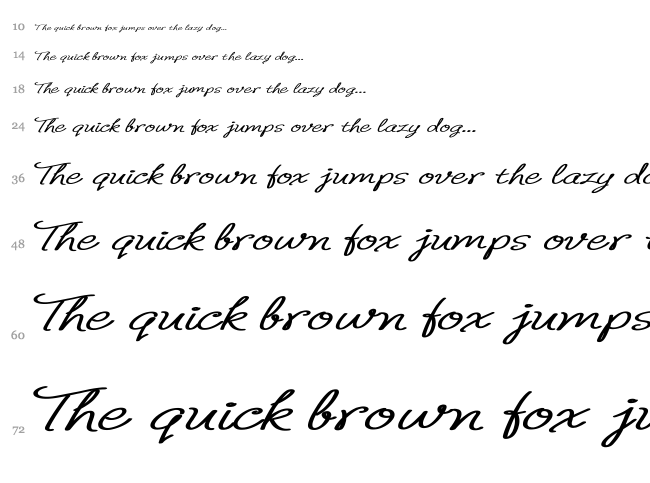 10 The quick brown fox jumps over the lazy dog...
14 The quick brown fox jumps over the lazy dog...
18 The quick brown fox jumps over the lazy dog...
24 The quick brown fox jumps over the lazy dog...
36 The quick brown fox jumps over the lazy do
48 The quick brown fox jumps over t
60 The quick brown fox jumps
72 The quick brown fox ju